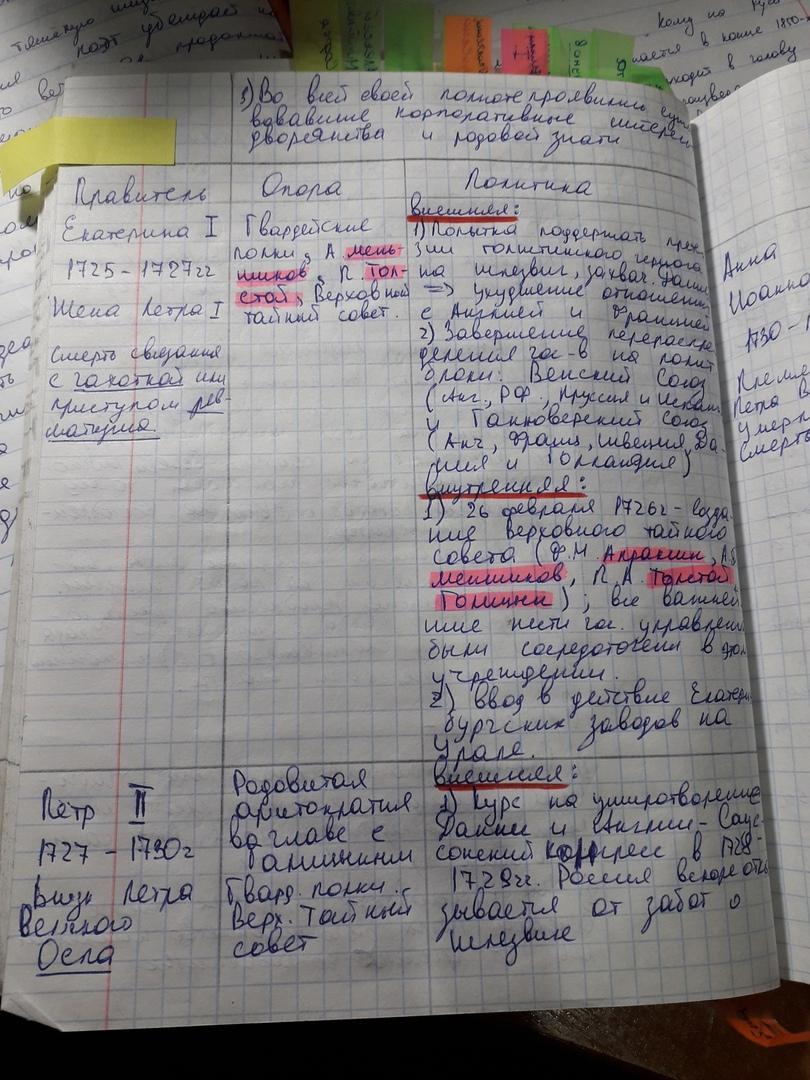 3) Во всей своей полноте проявились сущ
вовавшие корпоративные интерес
дворянства и родовой знати
Правитель
Опора
Политика
Екатерина I
1725 - 1727гг
Жена Петра I
Смерть связана
с чахоткой или
приступом рев-
матизма.
Гвардейские
полки, А. Мень-
шиков, П. Тол-
стой, Верховный
тайный совет.
внешняя:
1) Попытка поддержать прете
зии голштинского герцога
на Шлезвиг, захвач. Дани
=> ухудшение отношений
с Англией и Францией
2) Завершение перераспре
деления гос-в на полит
блоки: Венский Союз
(Анг., РФ., Пруссия и Испан
и Ганноверский союз
(Анг, Франц, Швеция, Да-
ния и Голландия)
внутренняя:
1) 26 февраля 1726г - созда
ние Верховного тайного
совета (Ф.М. Апраксин, А.
Меншиков, П. А. Толстой
Голицын); все важней
шие нити гос. управлени
были сосредоточены в этом
учреждении.
2) Ввод в действие Екатери
бургских заводов на
Урале.
Петр II
1727 - 1730г
Внук Петра
Великого
Оспа
Родовитая
аристократия
во главе с
Голицыным
Гвард. полки.
Верх. Тайный
совет
внешняя:
1) Курс на умиротворение
Дании и Англии - Суас-
сонский конгресс в 1728-
1729гг. Россия вскоре отка
зывается от забот о
Шлезвиге
Анна
Иоанно
1730 - 1
Племя
Петра В
умерла
Смерть
Кому на Руси
ается в конце 1850-
ходит в голову